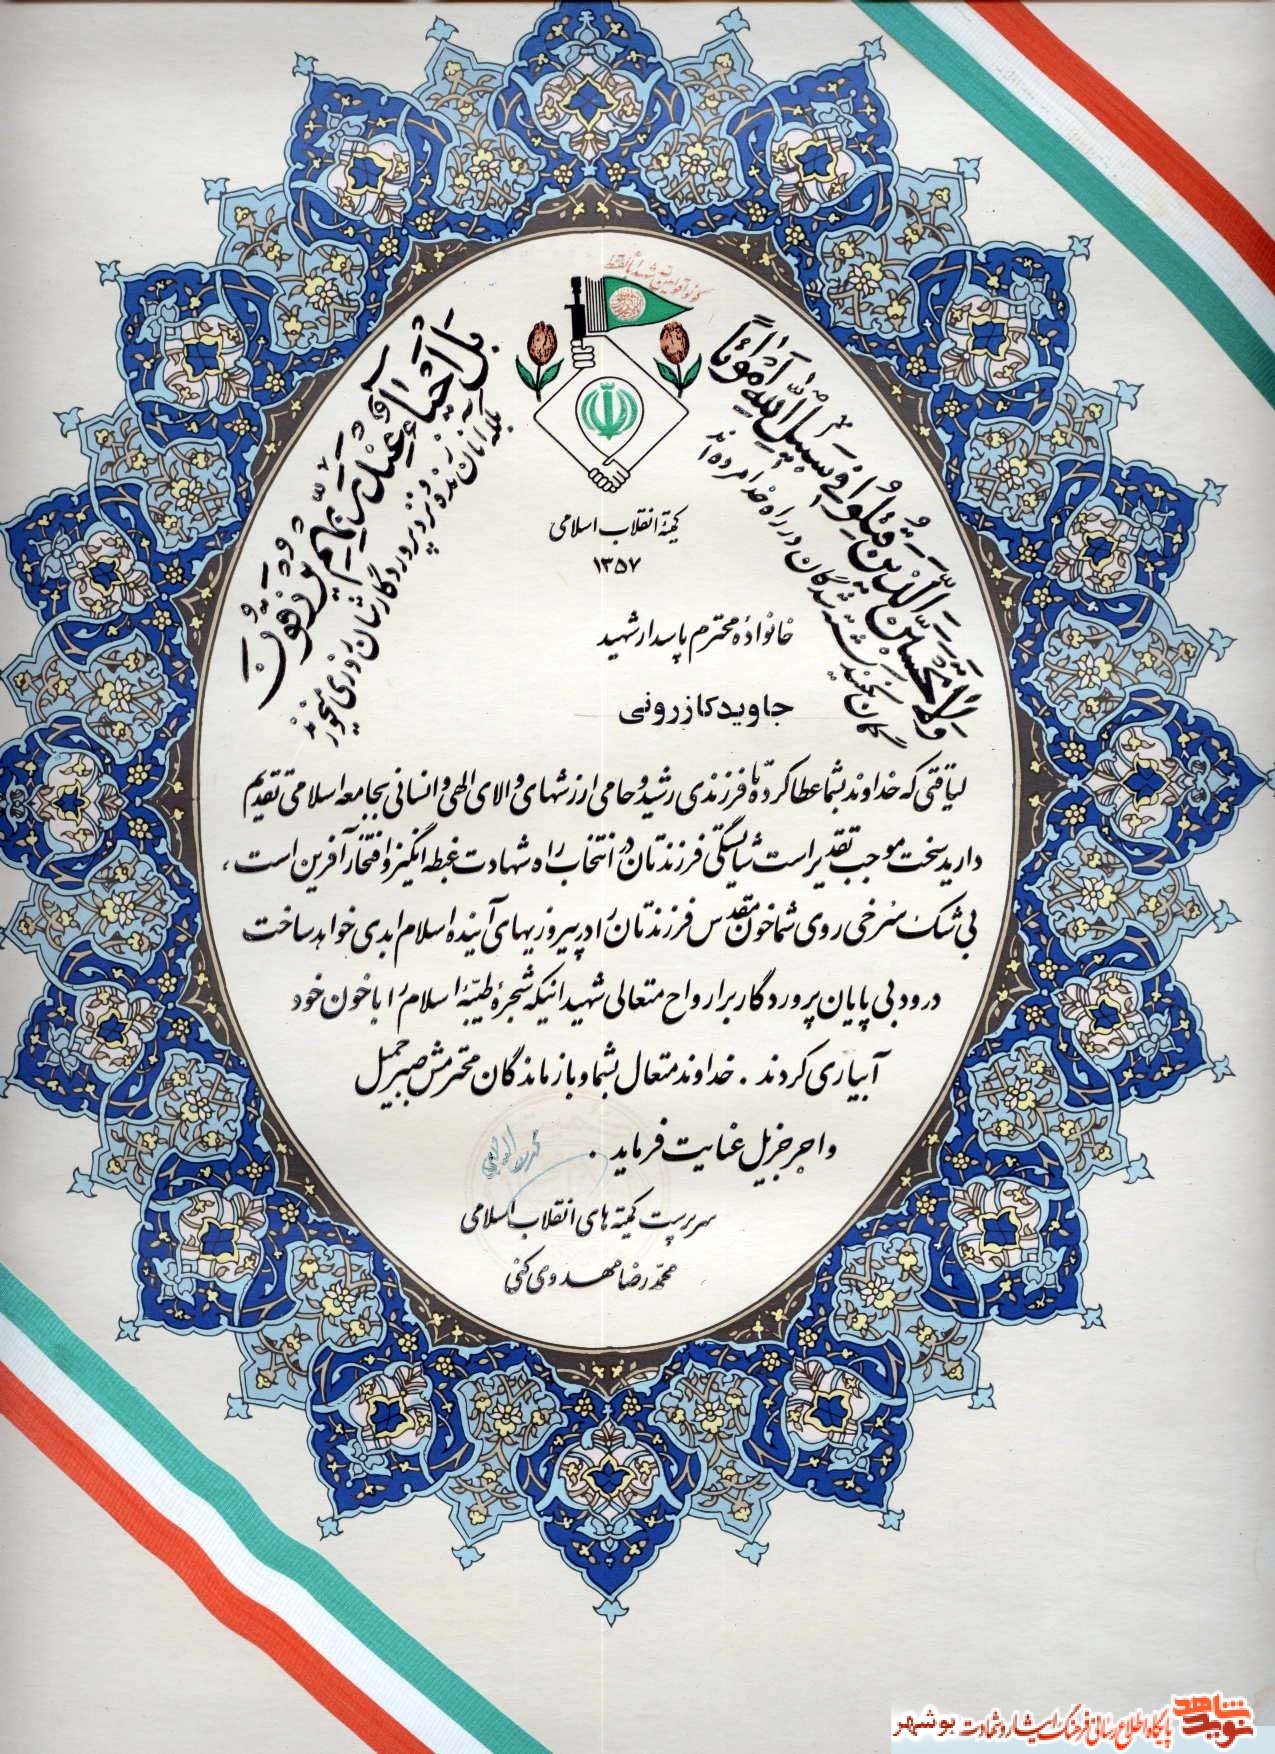 كونوا قوامين لله شهداء بالقسط
وَلا تَحْسَبَنَّ الَّذينَ قُتِلُوا في سَبيلِ اللّهِ اَمْواتاً
گمان نکنید که کشته شدگان در راه خدا مرده اند
بَلْ اَحْياءٌ عِنْدَ رَبِّهِمْ يُرْزَقُونَ
بلکه آنان زنده و نزد پروردگارشان روزی میخورند
کمیتهٔ انقلاب اسلامی
۱۳۵۷
خانواده محترم پاسدار شهید
جاوید کازرونی
لیاقتی که خداوند بشما عطا کرده تا فرزندی رشید و حامی ارزشهای والای الهی و انسانی بجامعه اسلامی تقدیم
دارید سخت موجب تقدیر است شایستگی فرزندتان در انتخاب راه شهادت غبطه انگیز و افتخار آفرین است ،
بی شک سرخی روی شما خون مقدس فرزندتان را در پیروزیهای آینده اسلام ابدی خواهد ساخت
درود بی پایان پروردگار بر ارواح متعالی شهیدانیکه شجرهٔ طیّبهٔ اسلام را با خون خود
آبیاری کردند . خداوند متعال بشما و بازماندگان محترمش صبر جمیل
و اجر جزیل عنایت فرماید .
سرپرست کمیته های انقلاب اسلامی
محمدرضا مهدوی کنی
نوید شاهد
پایگاه اطلاع رسانی فرهنگ ایثار و شهادت بوشهر